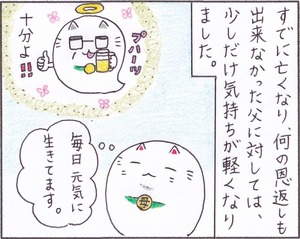 すでに亡くなり、何の恩返しも
出来なかった父に対しては、
少しだけ気持ちが軽くなり
ました。
プハーッ
十分よ!!
毎日元気に
生きてます。
母